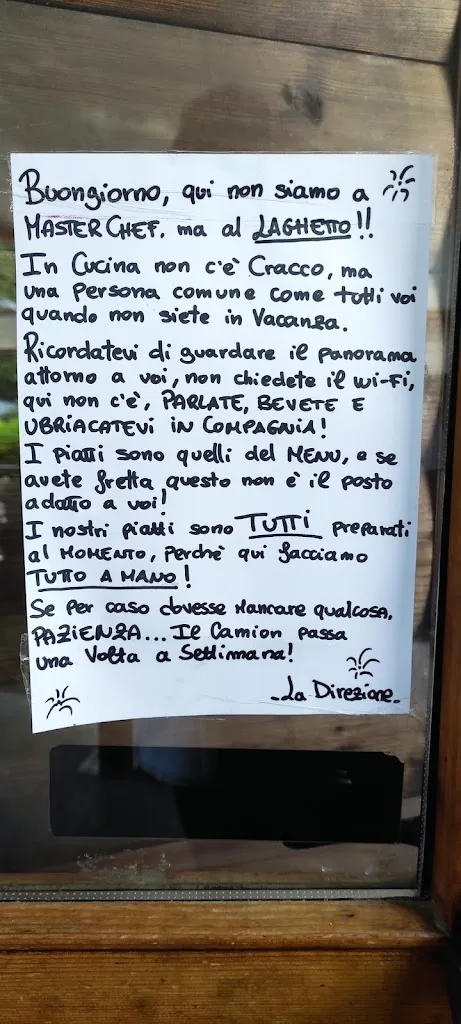 Buongiorno, qui non siamo a
MASTER CHEF. ma al LAGHETTO!!
In Cucina non c'è Cracco, ma
una Persona comune come tutti voi
quando non siete in Vacanza.
Ricordatevi di guardare il panorama
attorno a voi, non chiedete il wi-Fi,
qui non c'è, PARLATE, BEVETE E
UBRIACATEVI IN COMPAGNIA!
I piatti sono quelli del MENU, e se
avete fretta questo non è il posto
adatto a voi!
I nostri piatti sono TUTTI preparati
al MOMENTO, Perchè qui facciamo
TUTTO A MANO!
Se per caso dovesse Mancare qualcosa,
PAZIENZA... Il Camion passa
una Volta a Settimana!
-La Direzione-